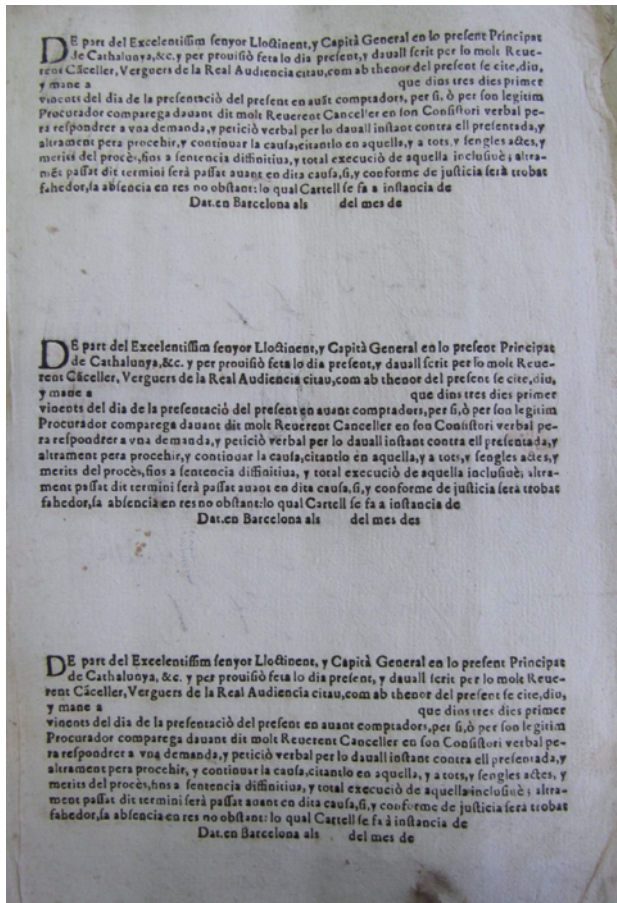 DE part del Excelentissim senyor Lloctinent, y Capità General en lo present Principat
de Cathalunya, &c. y per prouisiò feta lo dia present, y dauall scrit per lo molt Reue-
rent Cāceller, Verguers de la Real Audiencia citau, com ab thenor del present se cite, diu,
y mane a que dins tres dies primer
vinents del dia de la presentaciò del present en auāt comptadors, per si, ò per son legitim
Procurador comparega dauant dit molt Reuerent Canceller en son Consistori verbal pe-
ra respondrer a vna demanda, y petició verbal per lo dauall instant contra ell presentada, y
altrament pera procehir, y continuar la causa, citantlo en aquella, y a tots, y sengles actes, y
merits del procès, fins a sentencia diffinitiua, y total execuciò de aquella inclusiuè; altra-
mēt passat dit termini serà passat auant en dita causa, si, y conforme de justicia serà trobat
fahedor, sa absencia en res no obstant: lo qual Cartell se fa a instancia de
Dat. en Barcelona als del mes de
DE part del Excelentissim senyor Lloctinent, y Capità General en lo present Principat
de Cathalunya, &c. y per prouisiò feta lo dia present, y dauall scrit per lo molt Reue-
rent Cāceller, Verguers de la Real Audiencia citau, com ab thenor del present se cite, diu,
y mane a que dins tres dies primer
vinents del dia de la presentaciò del present en auant comptadors, per si, ò per son legitim
Procurador comparega dauant dit molt Reuerent Canceller en son Consistori verbal pe-
ra respondrer a vna demanda, y petició verbal per lo dauall instant contra ell presentada, y
altrament pera procehir, y continuar la causa, citantlo en aquella, y a tots, y sengles actes, y
merits del procès, fins a sentencia diffinitiua, y total execuciò de aquella inclusiuè; altra-
ment passat dit termini serà passat auant en dita causa, si, y conforme de justicia serà trobat
fahedor, sa absencia en res no obstant: lo qual Cartell se fa a instancia de
Dat. en Barcelona als del mes des
DE part del Excelentissim senyor Lloctinent, y Capità General en lo present Principat
de Cathalunya, &c. y per prouisiò feta lo dia present, y dauall scrit per lo molt Reue-
rent Cāceller, Verguers de la Real Audiencia citau, com ab thenor del present se cite, diu,
y mane a que dins tres dies primer
vinents del dia de la presentaciò del present en auant comptadors, per si, ò per son legitim
Procurador comparega dauant dit molt Reuerent Canceller en son Consistori verbal pe-
ra respondrer a vna demanda, y petició verbal per lo dauall instant contra ell presentada, y
altrament pera procehir, y continuar la causa, citantlo en aquella, y a tots, y sengles actes, y
merits del procès, fins a sentencia diffinitiua, y total execuciò de aquella inclusiuè; altra-
ment passat dit termini serà passat auant en dita causa, si, y conforme de justicia serà trobat
fahedor, sa absencia en res no obstant: lo qual Cartell se fa à instancia de
Dat. en Barcelona als del mes de